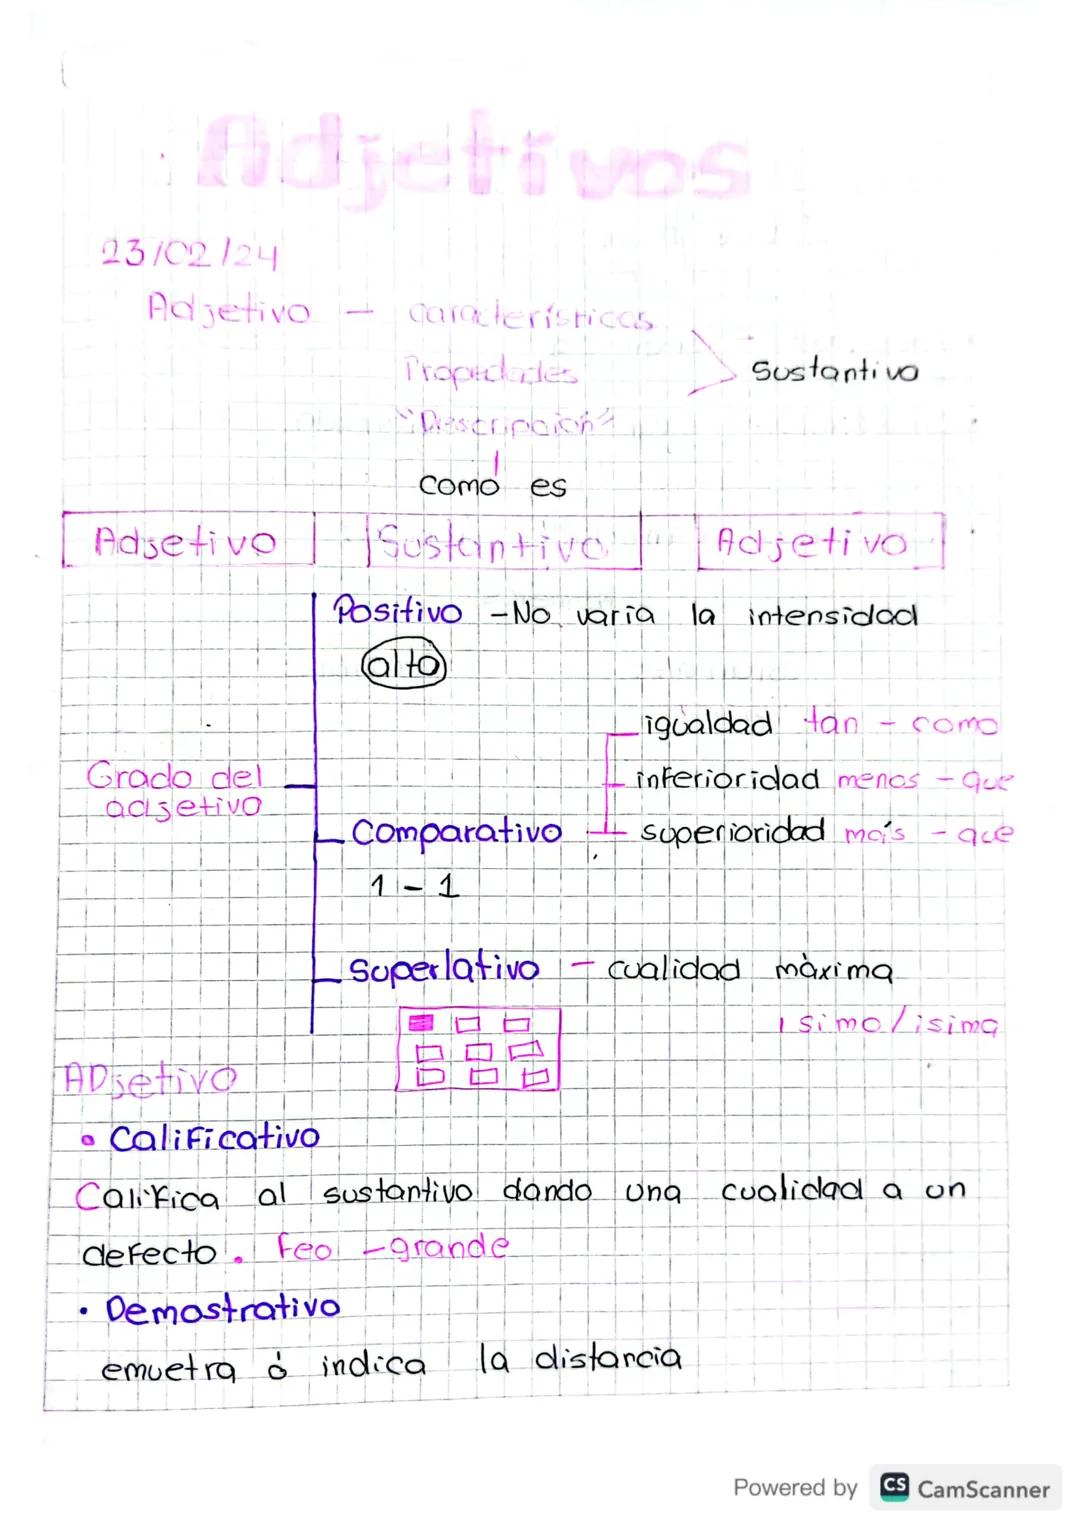 Adjetivos
23/02/24
Adjetivo - características
Propiedades
Sustantivo
"Descripción"
como es
Adjetivo Sustantivo Adjetivo
Positivo - No varia la intensidad
alto
igualdad tan - como
Grado del adjetivo
inferioridad menos - que
Comparativo
superioridad más - que
1 - 1
Superlativo - cualidad màxima
isimo/isima
ADjetivo
• Calificativo
Califica al sustantivo dando una cualidad a un
defecto. feo - grande
• Demostrativo
emuetra ó indica la distancia
Powered by CS CamScanner